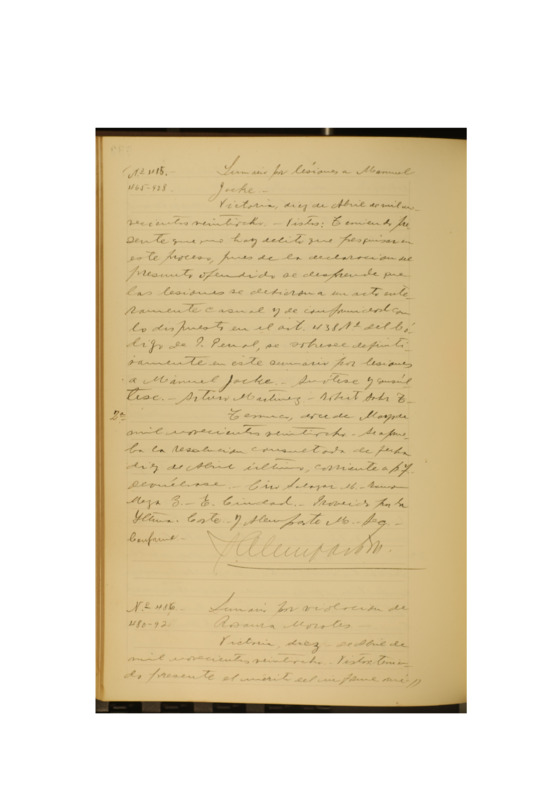 Nº 115.- Sumario por lesiones a Manuel
1165-928 Jocke.-
Victoria, diez de Abril de mil no-
vecientos veintiocho.- Vistos: Teniendo pre
sente que no hay delito que pesquisar en
este proceso, pues de la declaracion del
presunto ofendido se desprende que
las lesiones se debieron a un acto ente-
ramente casual y de conformidad con
lo dispuesto en el art. 438 Nº del Có-
digo de P. Penal, se sobresee definiti-
vamente en este sumario por lesiones
a Manuel Jocke.- Anótese y consúl
tese.- Arturo Martinez - Robert
2ª Temuco, doce de Mayo de
mil novecientos veintiocho.- Se aprue-
ba la resolucion consultada de fecha
diez de Abril último, corriente a f 7.
Devuélvase.- Ciro Salazar M.- Ramon
Meza E. Ciudad.- Proveido por la
Iltma. Corte.- J. Alemparte M.- Srio.-
Conforme.-
J Alemparte M.
N.º 116.- Sumario por violacion de
1180-92. Rosaura Morales.-
Victoria, diez de Abril de
mil novecientos veintiocho. Vistos: tenien-
do presente el mérito del